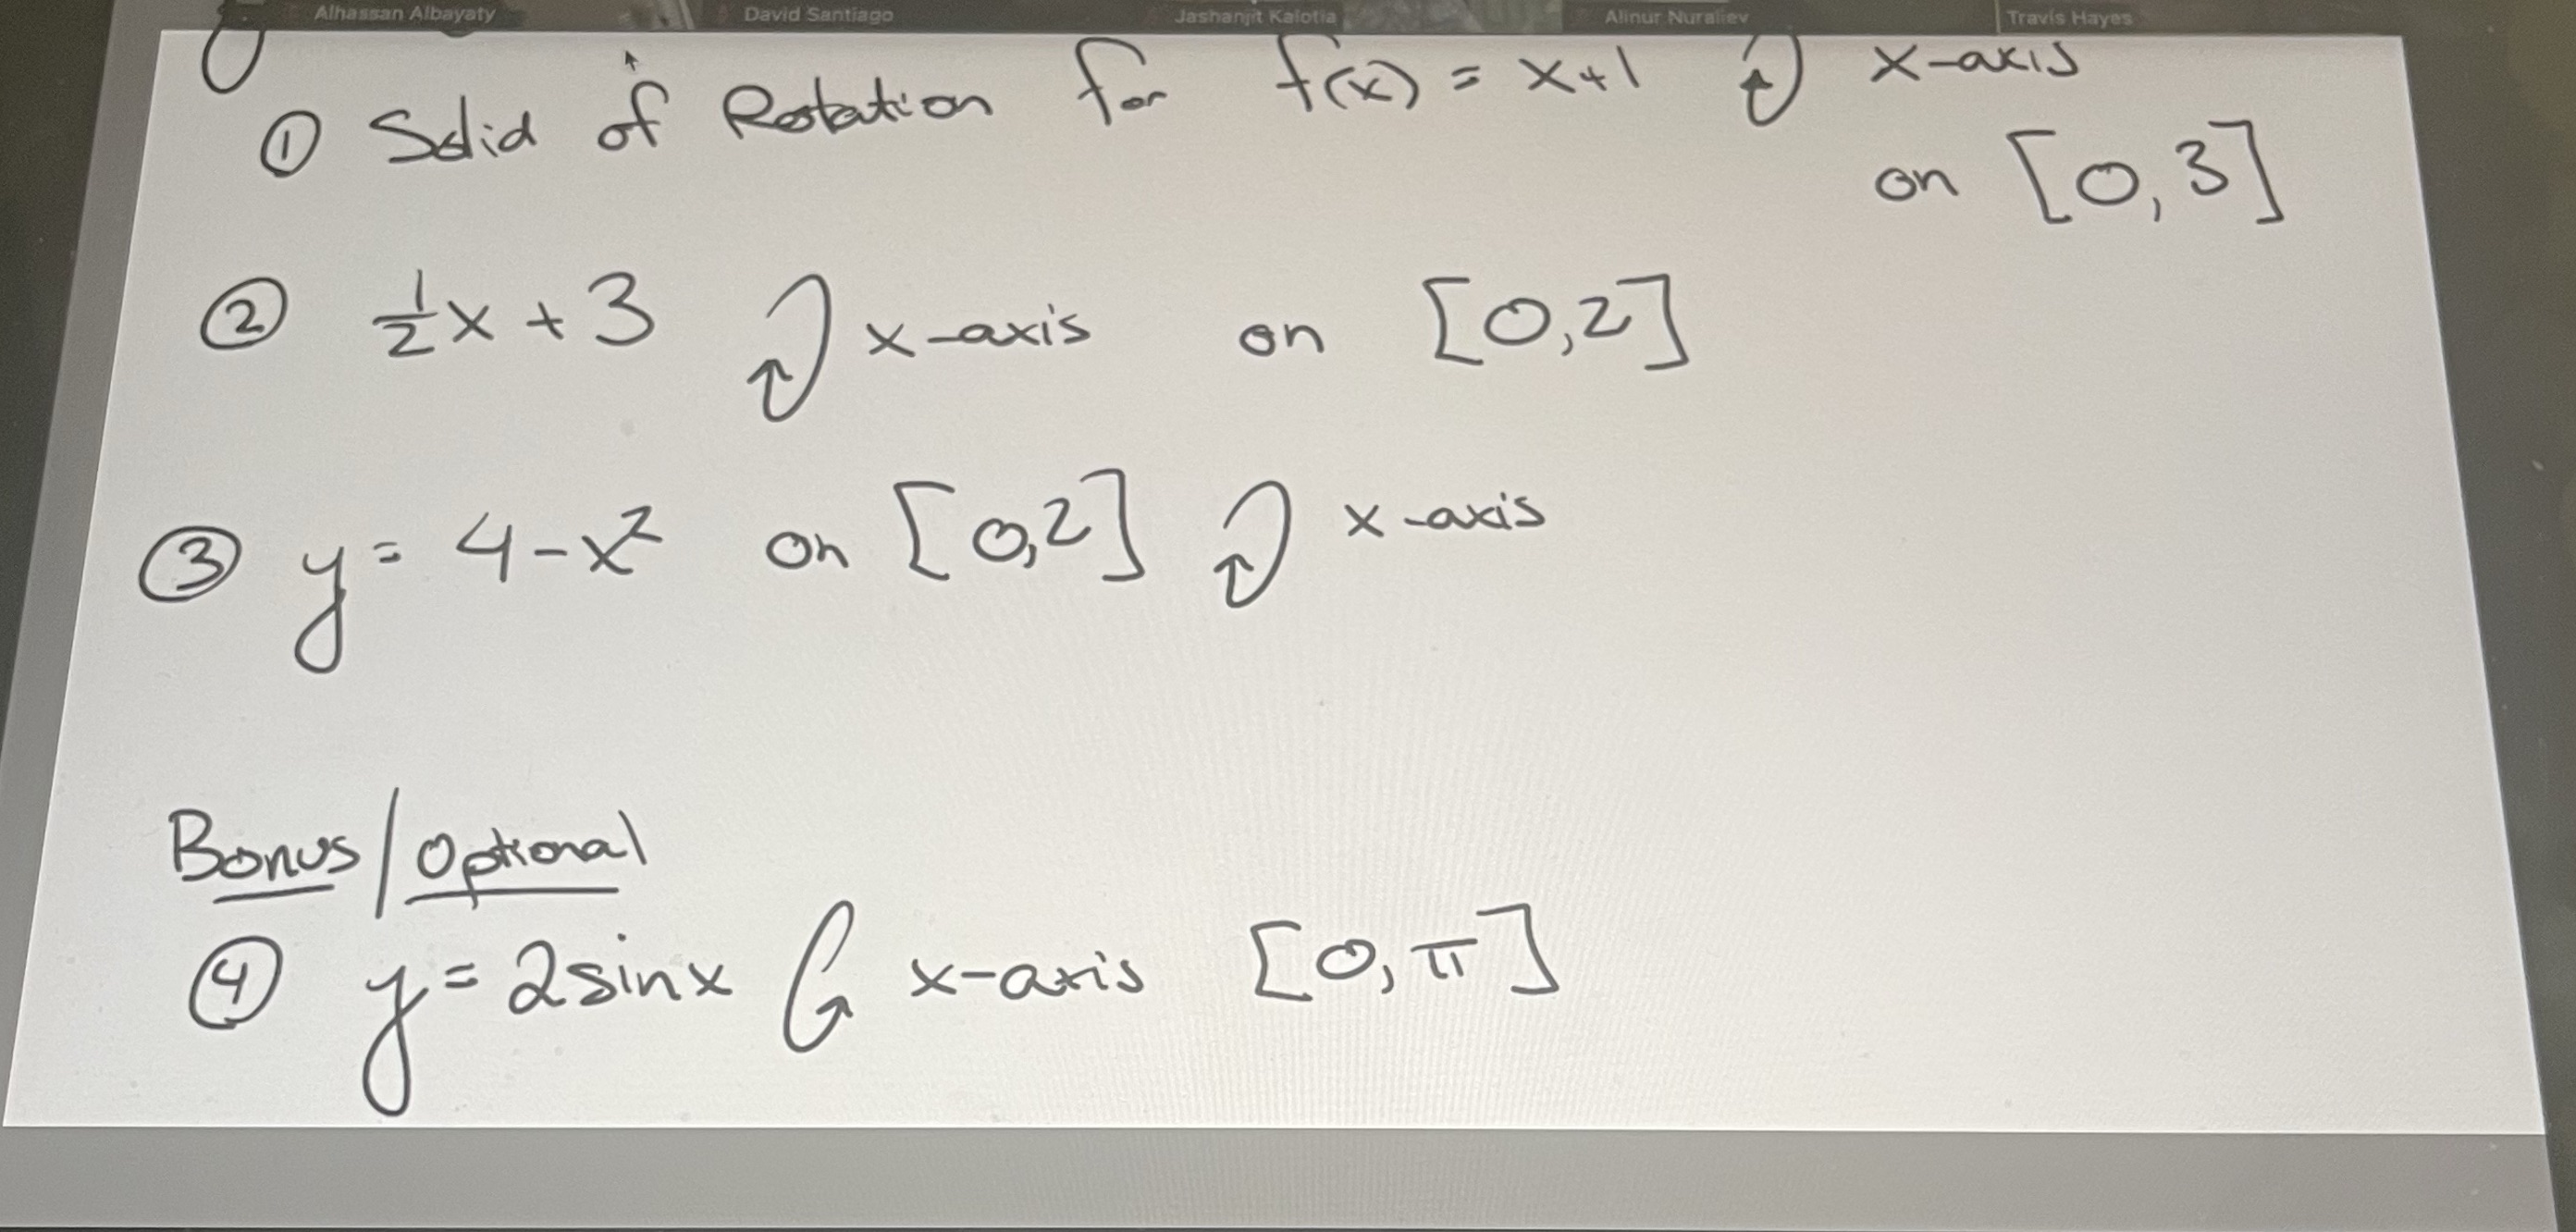 Alhassan Albayaty David Santiago Jashanjit Kalotia Alinur Nuraliev Travis Hayes
① Solid of Rotation for f(x) = x+1 x-axis
on [0,3]
② 1/2 x + 3 x-axis on [0,2]
③ y = 4-x² on [0,2] x-axis
Bonus/Optional
④ y = 2sinx x-axis [0,π]